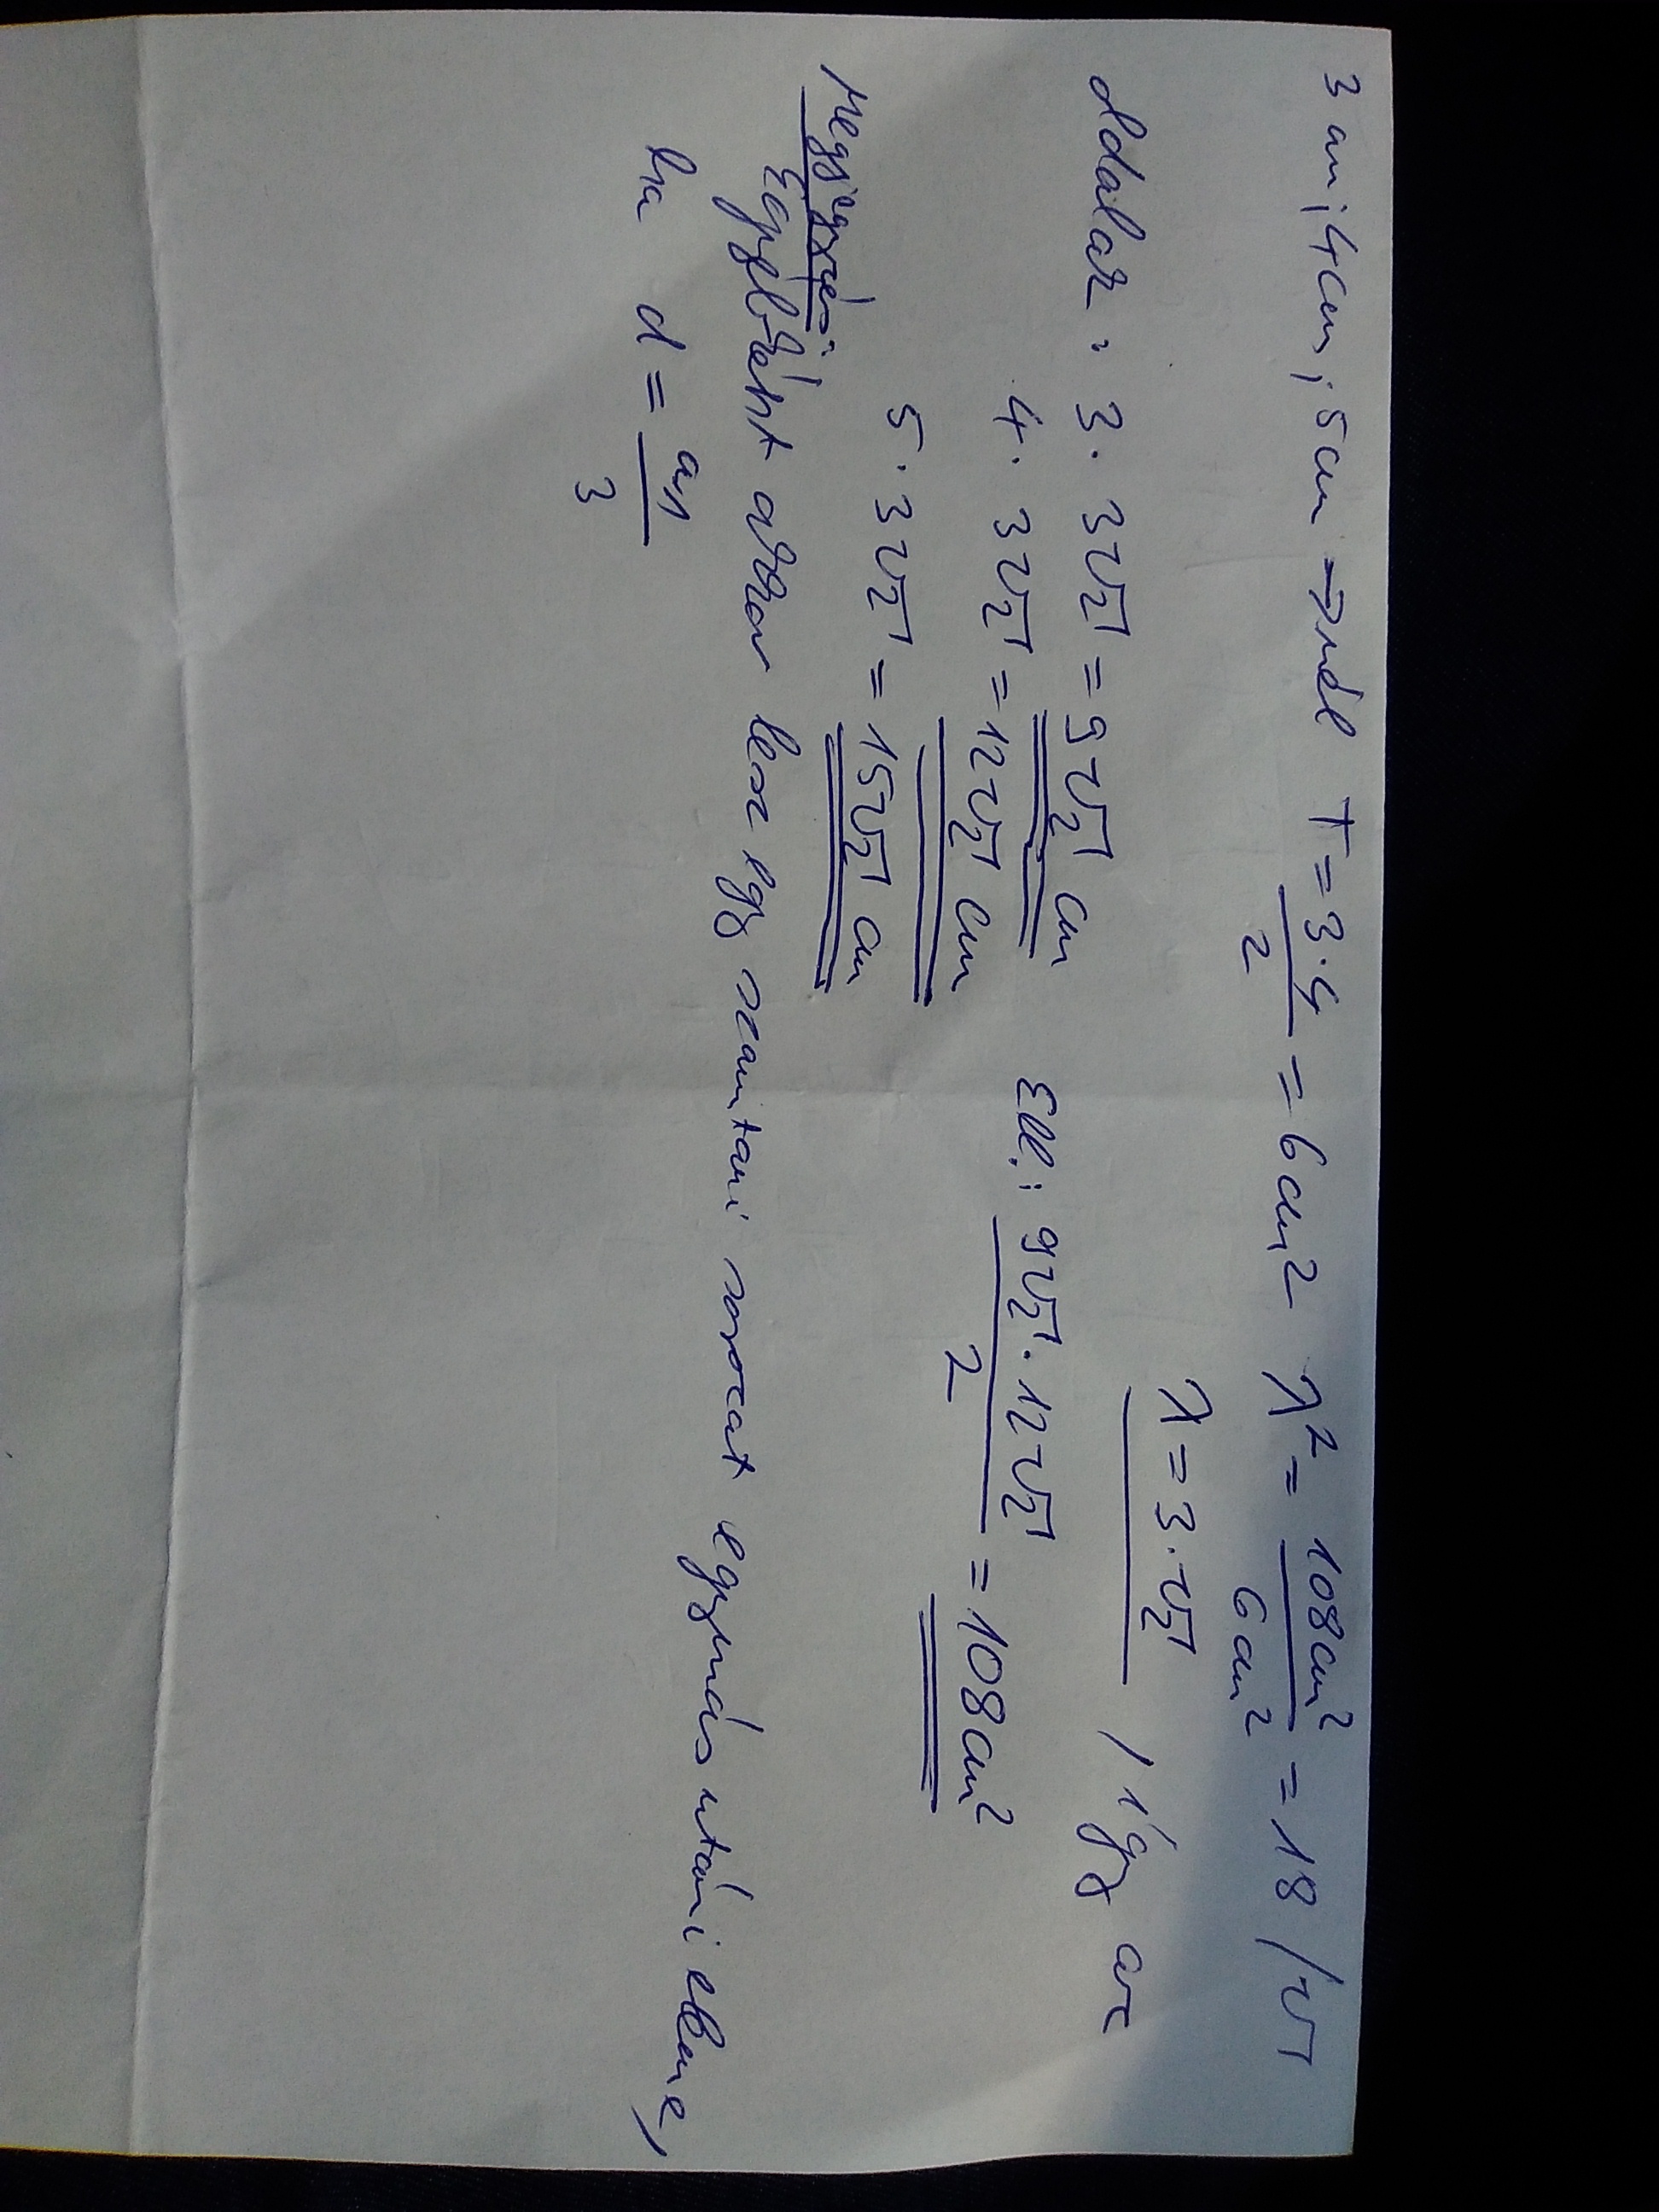 3 cm; 4cm; 5cm → nél T = 3·4/2 = 6cm² λ² = 108cm²/6cm² = 18 /√
λ = 3·√2 / így az
oldalak: 3·3√2 = 9√2 cm
4·3√2 = 12√2 cm Ell.: 9√2·12√2/2 = 108cm²
5·3√2 = 15√2 cm
Megjegyzés:
Egyébként akkor lesz egy számtani sorozat egymás utáni eleme,
ha d = a₁/3